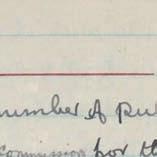 number of pu
Commission for th